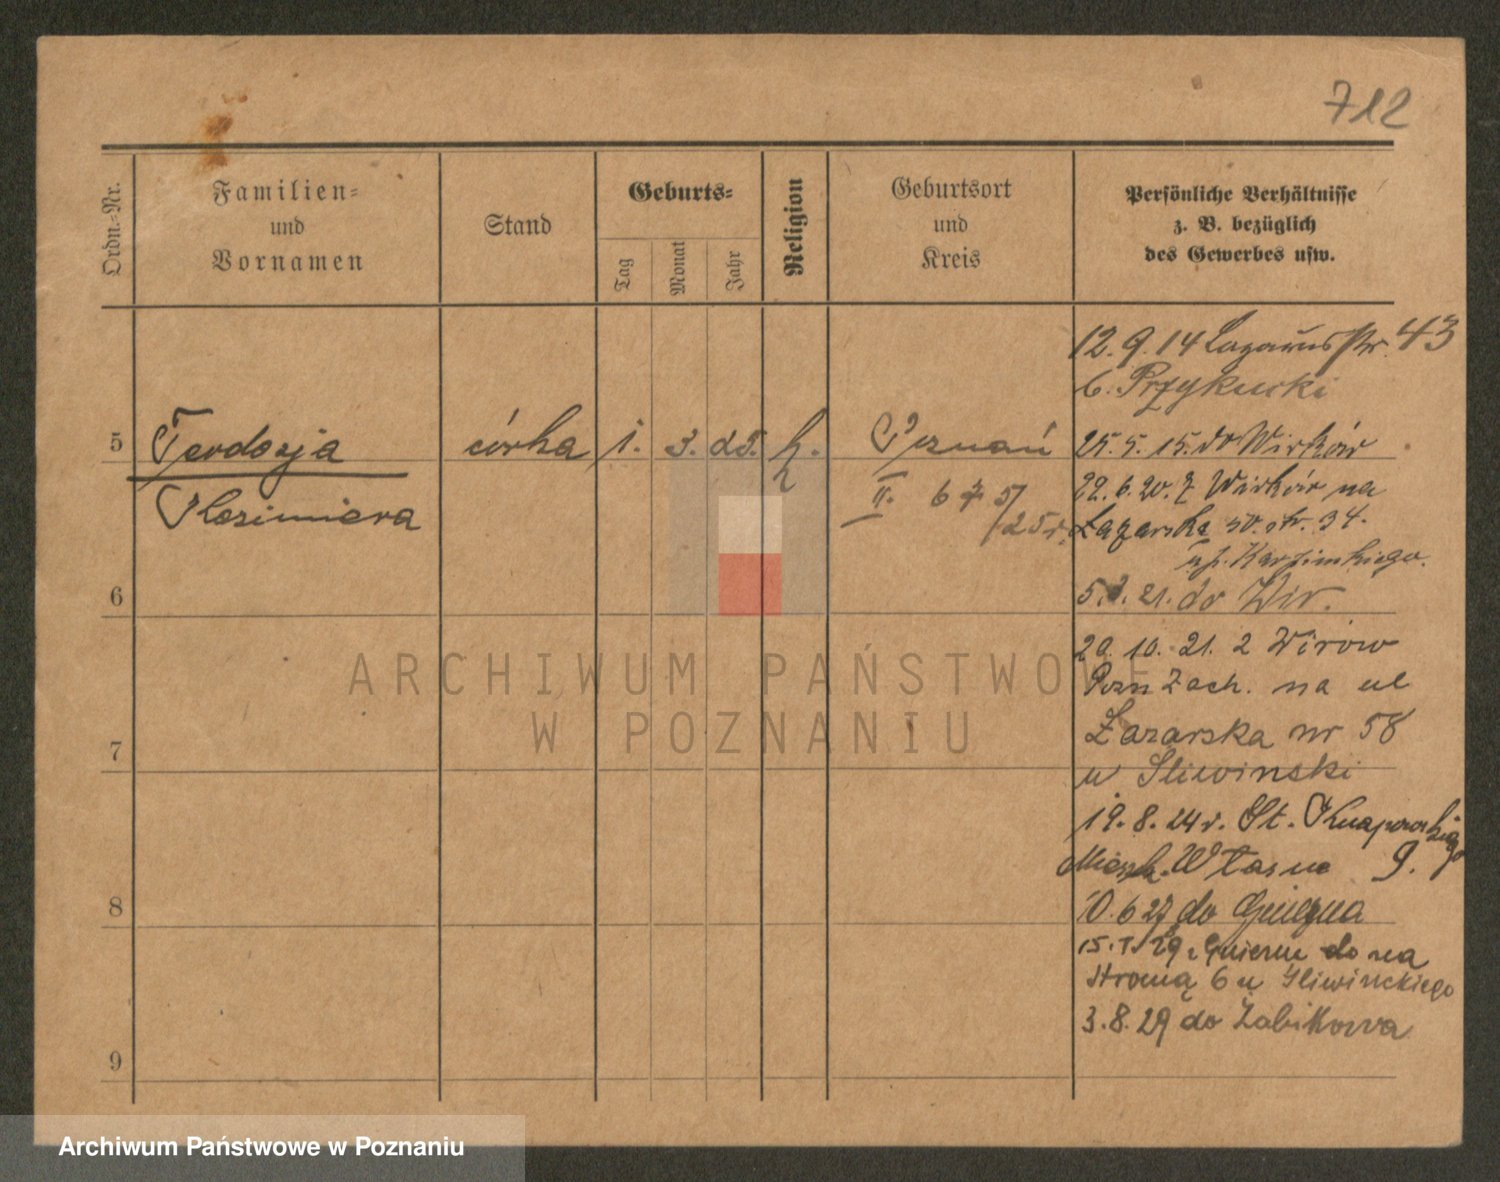 712
Ordn.-Nr.
Familien-
und
Vornamen
Stand
Geburts-
Tag
Monat
Jahr
Religion
Geburtsort
und
Kreis
Persönliche Verhältnisse
z. B. bezüglich
des Gewerbes usw.
5
Teodozja
Kazimiera
córka
1. 3. 25. k.
Poznań
II. 675/25r.
6
7
8
9
12.9.14 Lazarusstr. 43
b. Przykucki
25.5.15. do Wirków
22.6.20. z Wirków na
Łazarska 34.
do Wir.
20.10.21. z Wirów
Pozn Zach. na ul
Łazarska nr 58
u Sliwinski
19.8.24r. St. Knapowskiego
Mieszk. Własne 9.
10.6 27 do Gniezna
15. 29 z Gniezna do na
Stromą 6 u Sliwinckiego
3.8.29 do Żabikowa
ARCHIWUM PAŃSTWOWE
W POZNANIU
Archiwum Państwowe w Poznaniu